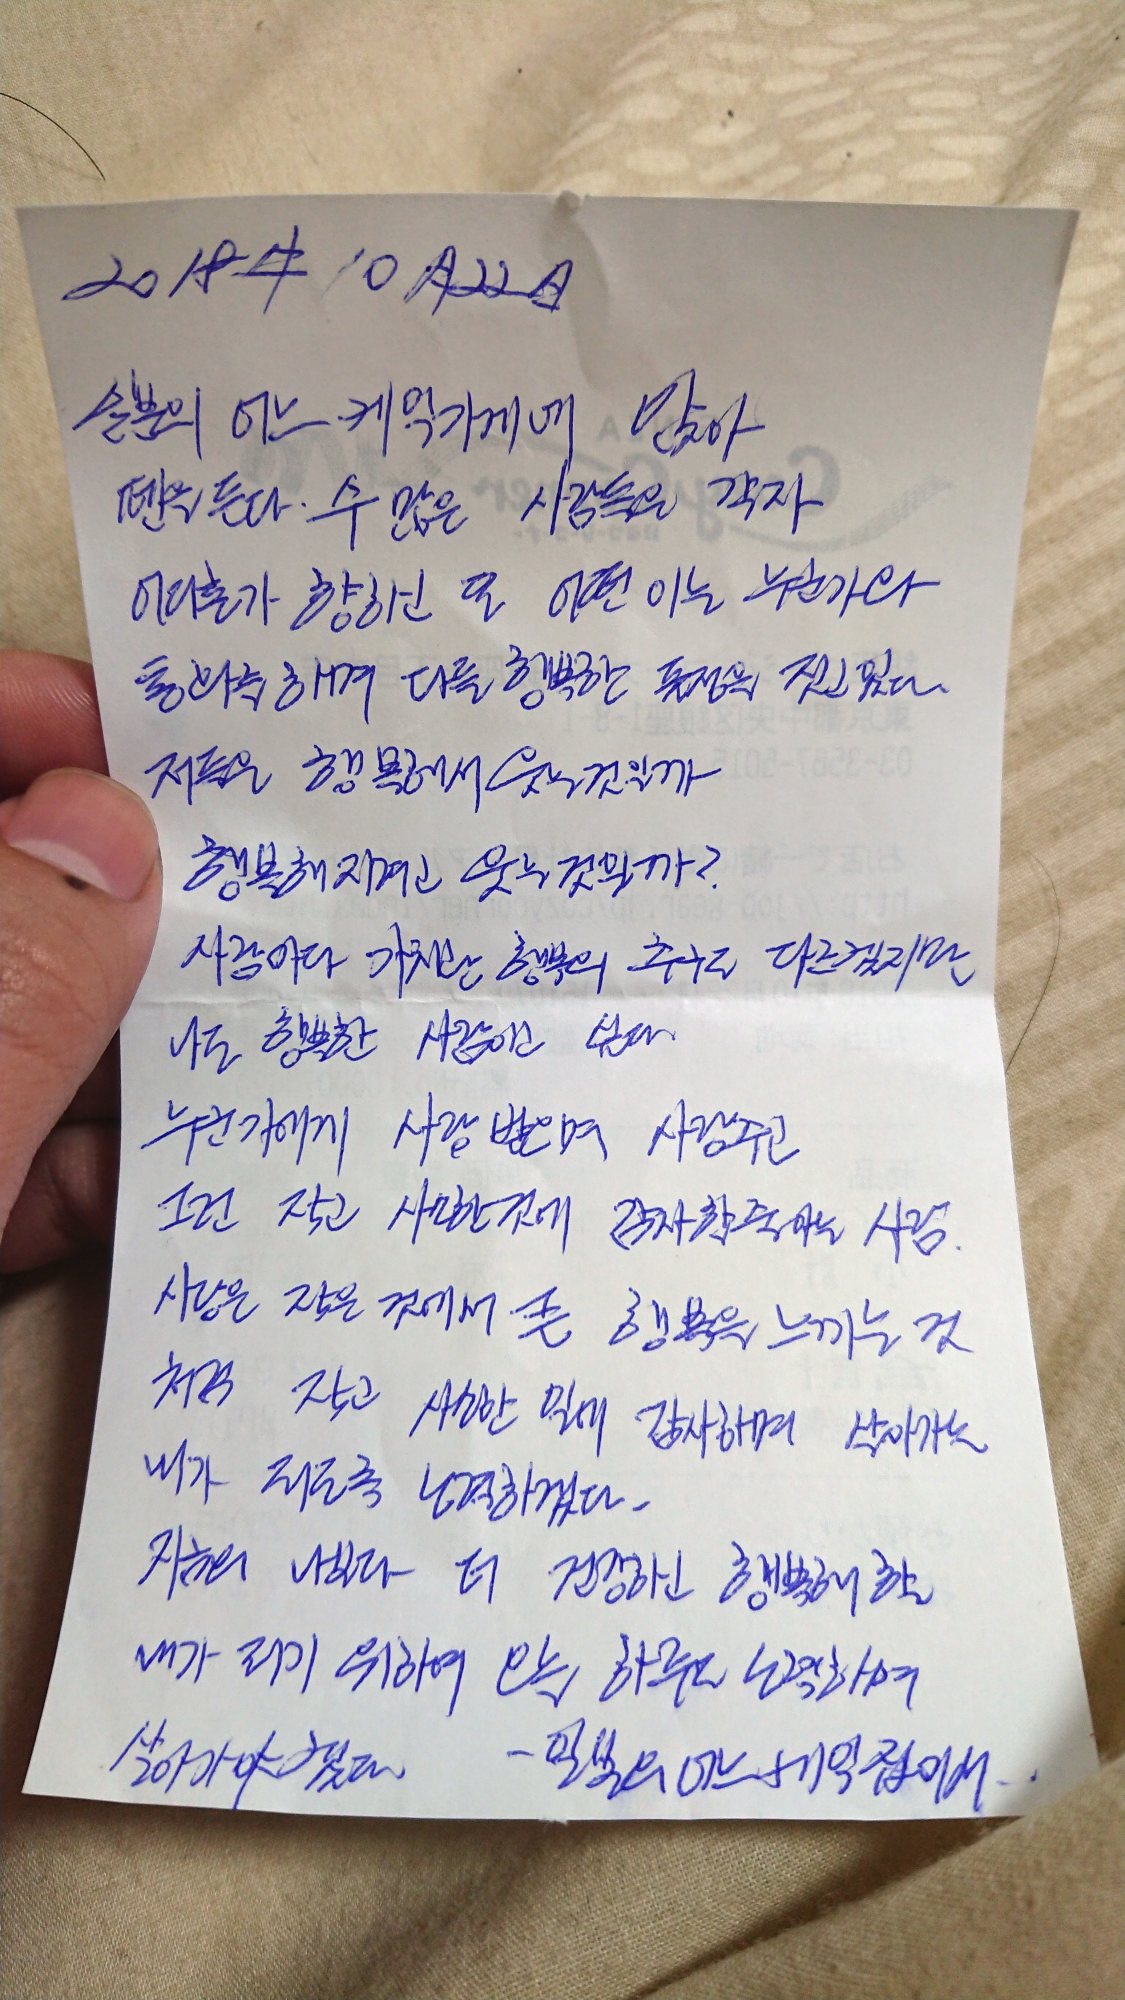 2018年 10月22日
일본의 어느 케익가게에 앉아
펜을 든다. 수 많은 사람들은 각자
어디론가 향하고 또 어떤 이는 누군가와
통화를 하며 다들 행복한 표정을 짓고 있다.
저들은 행복해서 웃는것일까
행복해지려고 웃는것일까?
사람마다 가치관 행복의 추구도 다르겠지만
나도 행복한 사람이고 싶다
누군가에게 사랑 받으며 사랑주고
그런 작고 사소한것에 감사할줄아는 사람.
사랑은 작은 것에서 큰 행복을 느끼는 것
처럼 작고 사소한 일에 감사하며 살아가는
내가 되도록 노력하겠다.
지금의 나보다 더 건강하고 행복해 할
내가 되기 위하여 오늘 하루도 노력하며
살아가야 겠다 - 일본의 어느 케익집에서..